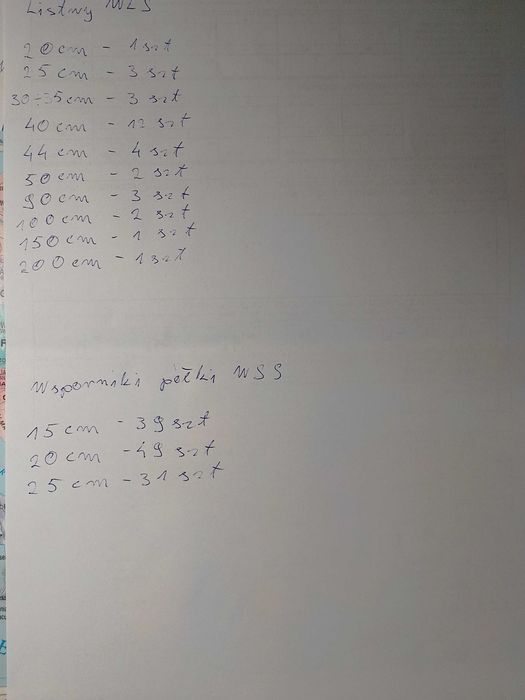 Listwy WLS
20cm - 1 szt
25cm - 3 szt
30÷35cm - 3 szt
40cm - 12 szt
44cm - 4 szt
50cm - 2 szt
90cm - 3 szt
100cm - 2 szt
150cm - 1 szt
200cm - 1 szt
Wsporniki półki WSS
15cm - 39 szt
20cm - 49 szt
25cm - 31 szt